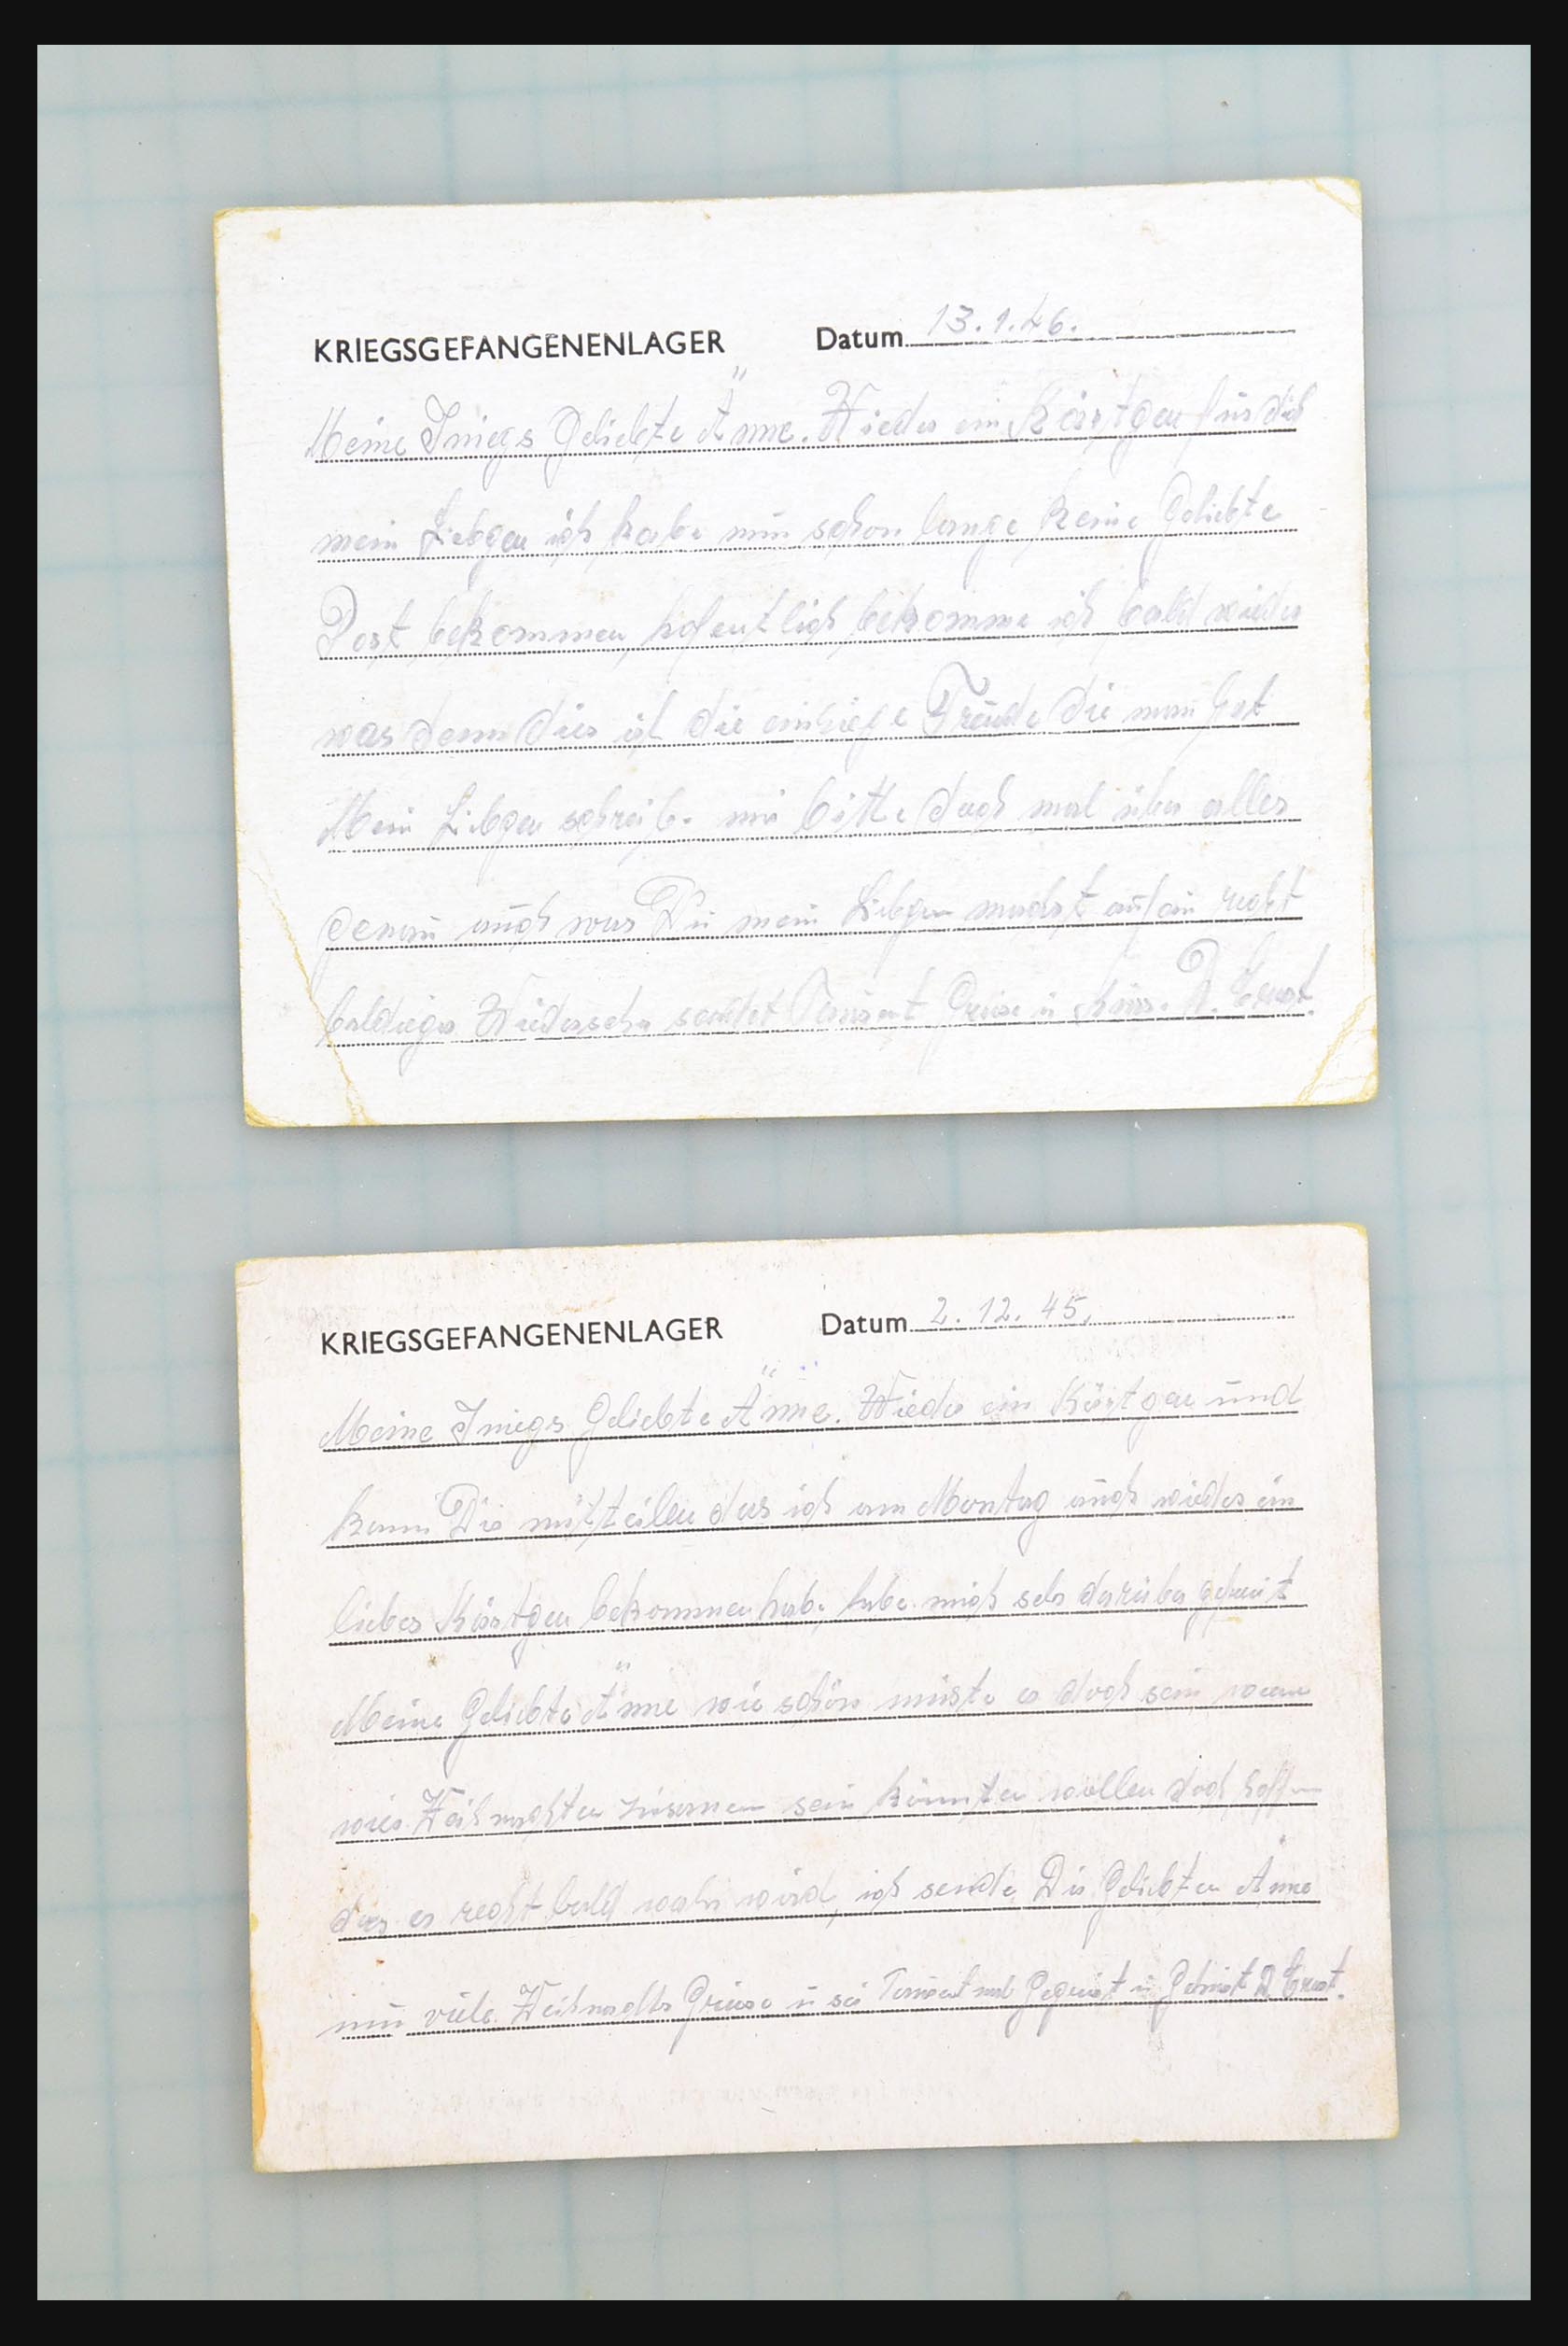 KRIEGSGEFANGENENLAGER Datum 13.1.46.
Meine Iniegs Geliebte Änne. Wieder ein Kärtgen für dich
mein Liebgen ich habe nun schon lange keine Geliebte
Post bekommen, hofentlich bekomme ich bald wieder
was denn dies ist die einhiege Freude die man hat
Mein Liebgen schreibe mir bitte doch mal über alles
genau auch was Du mein Liebgen machst auf ein recht
baldieges Wiedersehn sendet Tausent Grüse u Küsse D. Ernst.
KRIEGSGEFANGENENLAGER Datum 2. 12. 45.
Meine Iniegs Geliebte Änne. Wieder ein Kärtgen und
kann Dir mitteilen das ich am Montag auch wieder ein
liebes Kärtgen bekommen habe habe mich sehr darüber gefreut
Meine Geliebte Änne wie schön müste es doch sein wenn
wier Weihnachten zusamen sein könnten wollen doch hoffen
das es recht bald wahr wird, ich sende Dir Geliebten Änne
nun viele Weihnachts Grüse u sei Tausent mal Gegrüst u Geküst D. Ernst.